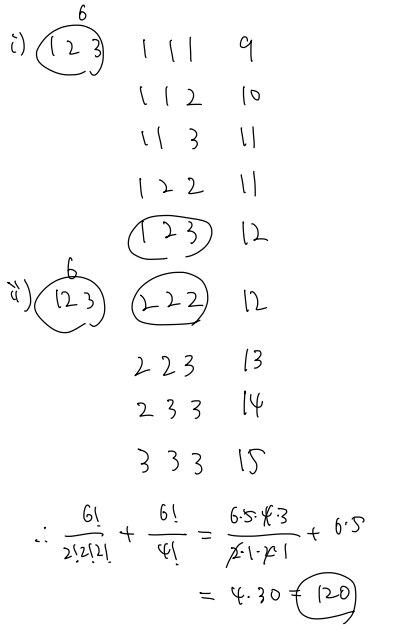 6
i) 1 2 3 1 1 1 9
1 1 2 10
1 1 3 11
1 2 2 11
1 2 3 12
6
ii) 1 2 3 2 2 2 12
2 2 3 13
2 3 3 14
3 3 3 15
∴ 6!/2!2!2! + 6!/4! = 6·5·4·3/2·1·2·1 + 6·5
= 4·30 = 120